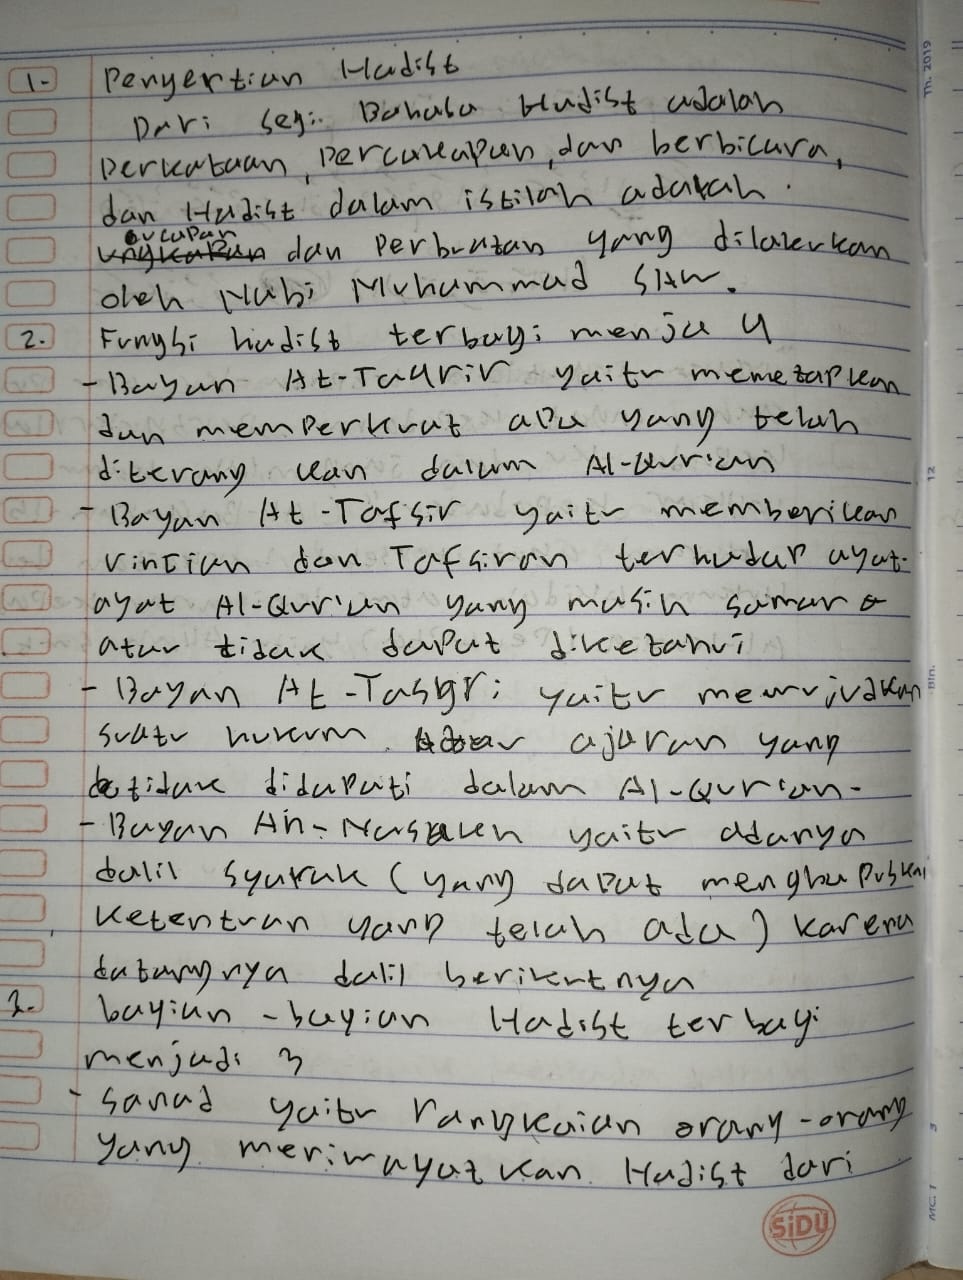 1. Pengertian Hadist
Dari segi Bahasa Hadist adalah
Perkataan, Percakapan, dan berbicara,
dan Hadist dalam istilah adalah.
ucupan
ungkapan dan Perbuatan yang dilakukan
oleh Nabi Muhammad SAW.
2. Fungsi hadist terbagi menja 4
- Bayan At-Taqrir yaitu memetapkan
dan memperkuat apa yang telah
diterang kan dalam Al-Qur'an
- Bayan At-Tafsir yaitu memberikan
rincian dan Tafsiran terhadap ayat-
ayat Al-Qur'an yang masih samar
atau tidak dapat diketahui
- Bayan At-Tasyri yaitu mewujudkan
suatu hukum ajaran yang
tidak didapati dalam Al-Qur'an.
- Bayan An-Nasakh yaitu adanya
dalil syarak (yang dapat menghapuskan
Ketentuan yang telah ada) karena
datangnya dalil berikutnya
3. bagian-bagian Hadist terbagi
menjadi 3
- Sanad yaitu rangkaian orang-orang
yang meriwayatkan Hadist dari
SiDU
Th. 2019
12
Bln.
3
MC. 1